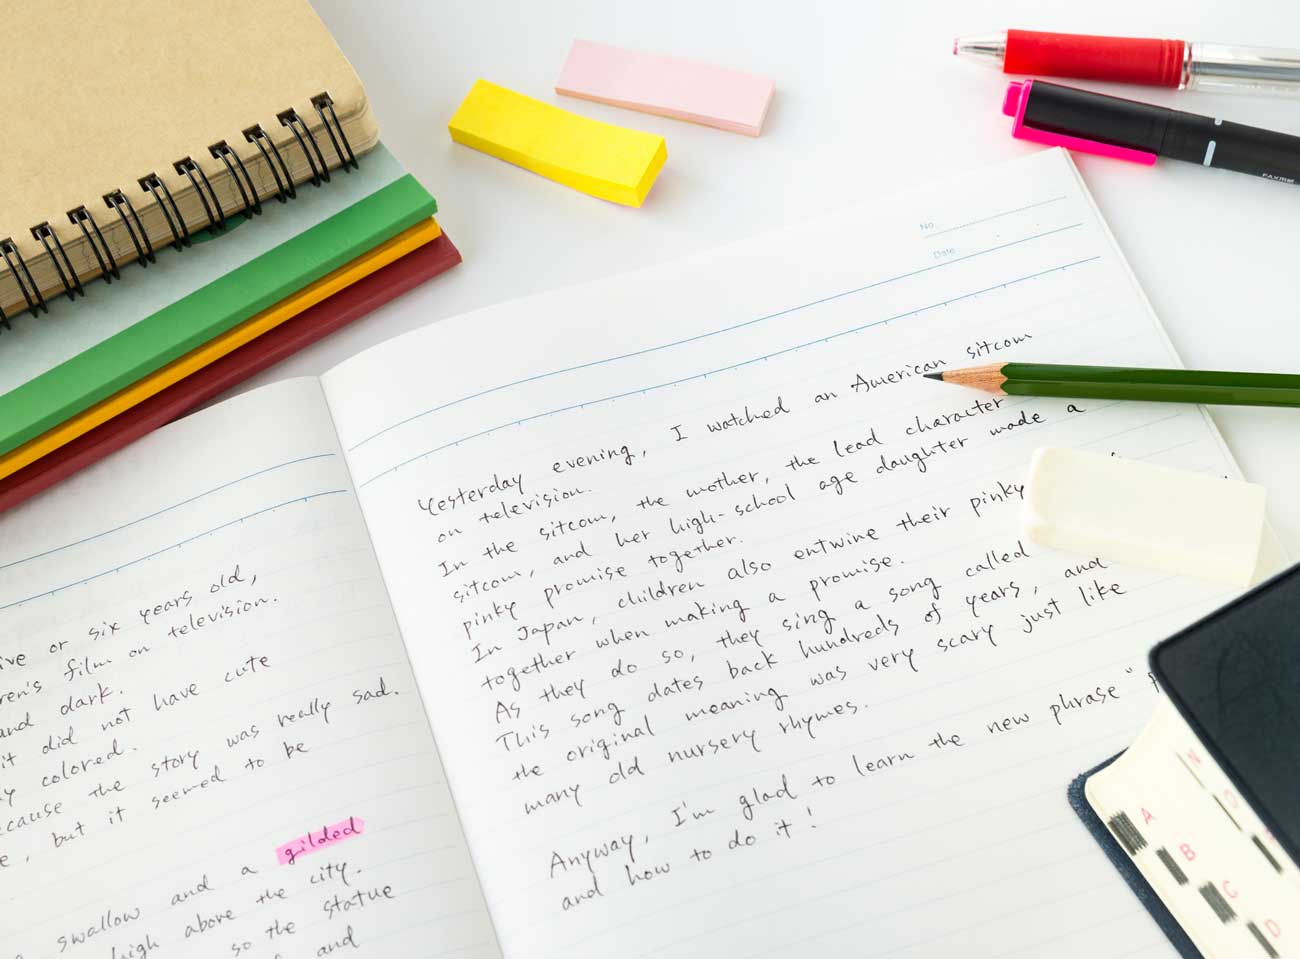 ive or six years old,
ren's film on television.
and dark.
it did not have cute
y colored.
ecause the story was really sad.
e, but it seemed to be
swallow and a gilded
high above the city.
so the statue
and
No.
Date
Yesterday evening, I watched an American sitcom
on television.
In the sitcom, the mother, the lead character
sitcom, and her high-school age daughter made a
pinky promise together.
In Japan, children also entwine their pinky
together when making a promise.
As they do so, they sing a song called
This song dates back hundreds of years, and
the original meaning was very scary just like
many old nursery rhymes.
Anyway, I'm glad to learn the new phrase "
and how to do it!
A
B
C
D